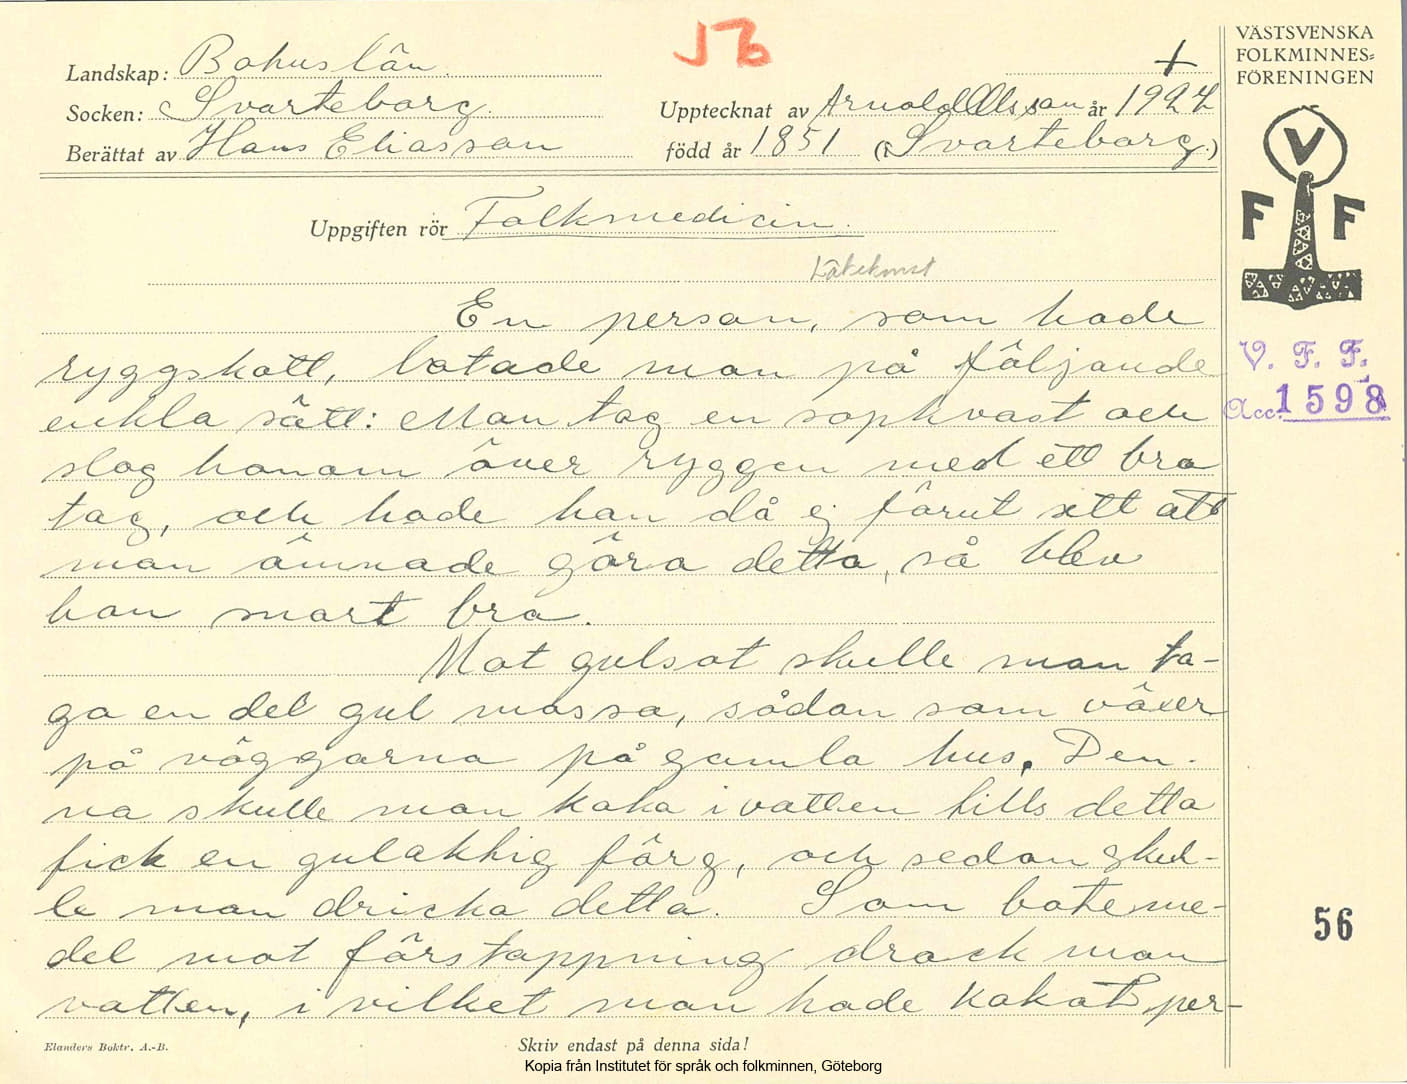 J6
Landskap: Bohuslän
VÄSTSVENSKA
FOLKMINNES=
FÖRENINGEN
Socken: Svarteborg.
Upptecknat av Arnold Olsson år 1927
Berättat av Hans Eliasson
född år 1851 (i Svarteborg.)
V
F F
Uppgiften rör Folkmedicin.
Läkekonst
En person, som hade
ryggskott, botade man på följande
enkla sätt: Man tog en sopkvast och
slog honom över ryggen med ett bra
tag, och hade han då ej förut sett att
man ämnade göra detta, så blev
han snart bra.
Mot gulsot skulle man ta-
ga en del gul mossa, sådan som växer
på väggarna på gamla hus. Den-
na skulle man koka i vatten tills detta
fick en gulaktig färg, och sedan skul-
le man dricka detta. Som boteme-
del mot förstoppning drack man
vatten, i vilket man hade kokat per-
V. F. F.
Acc. 1598
56
Elanders Boktr. A.-B.
Skriv endast på denna sida!
Kopia från Institutet för språk och folkminnen, Göteborg